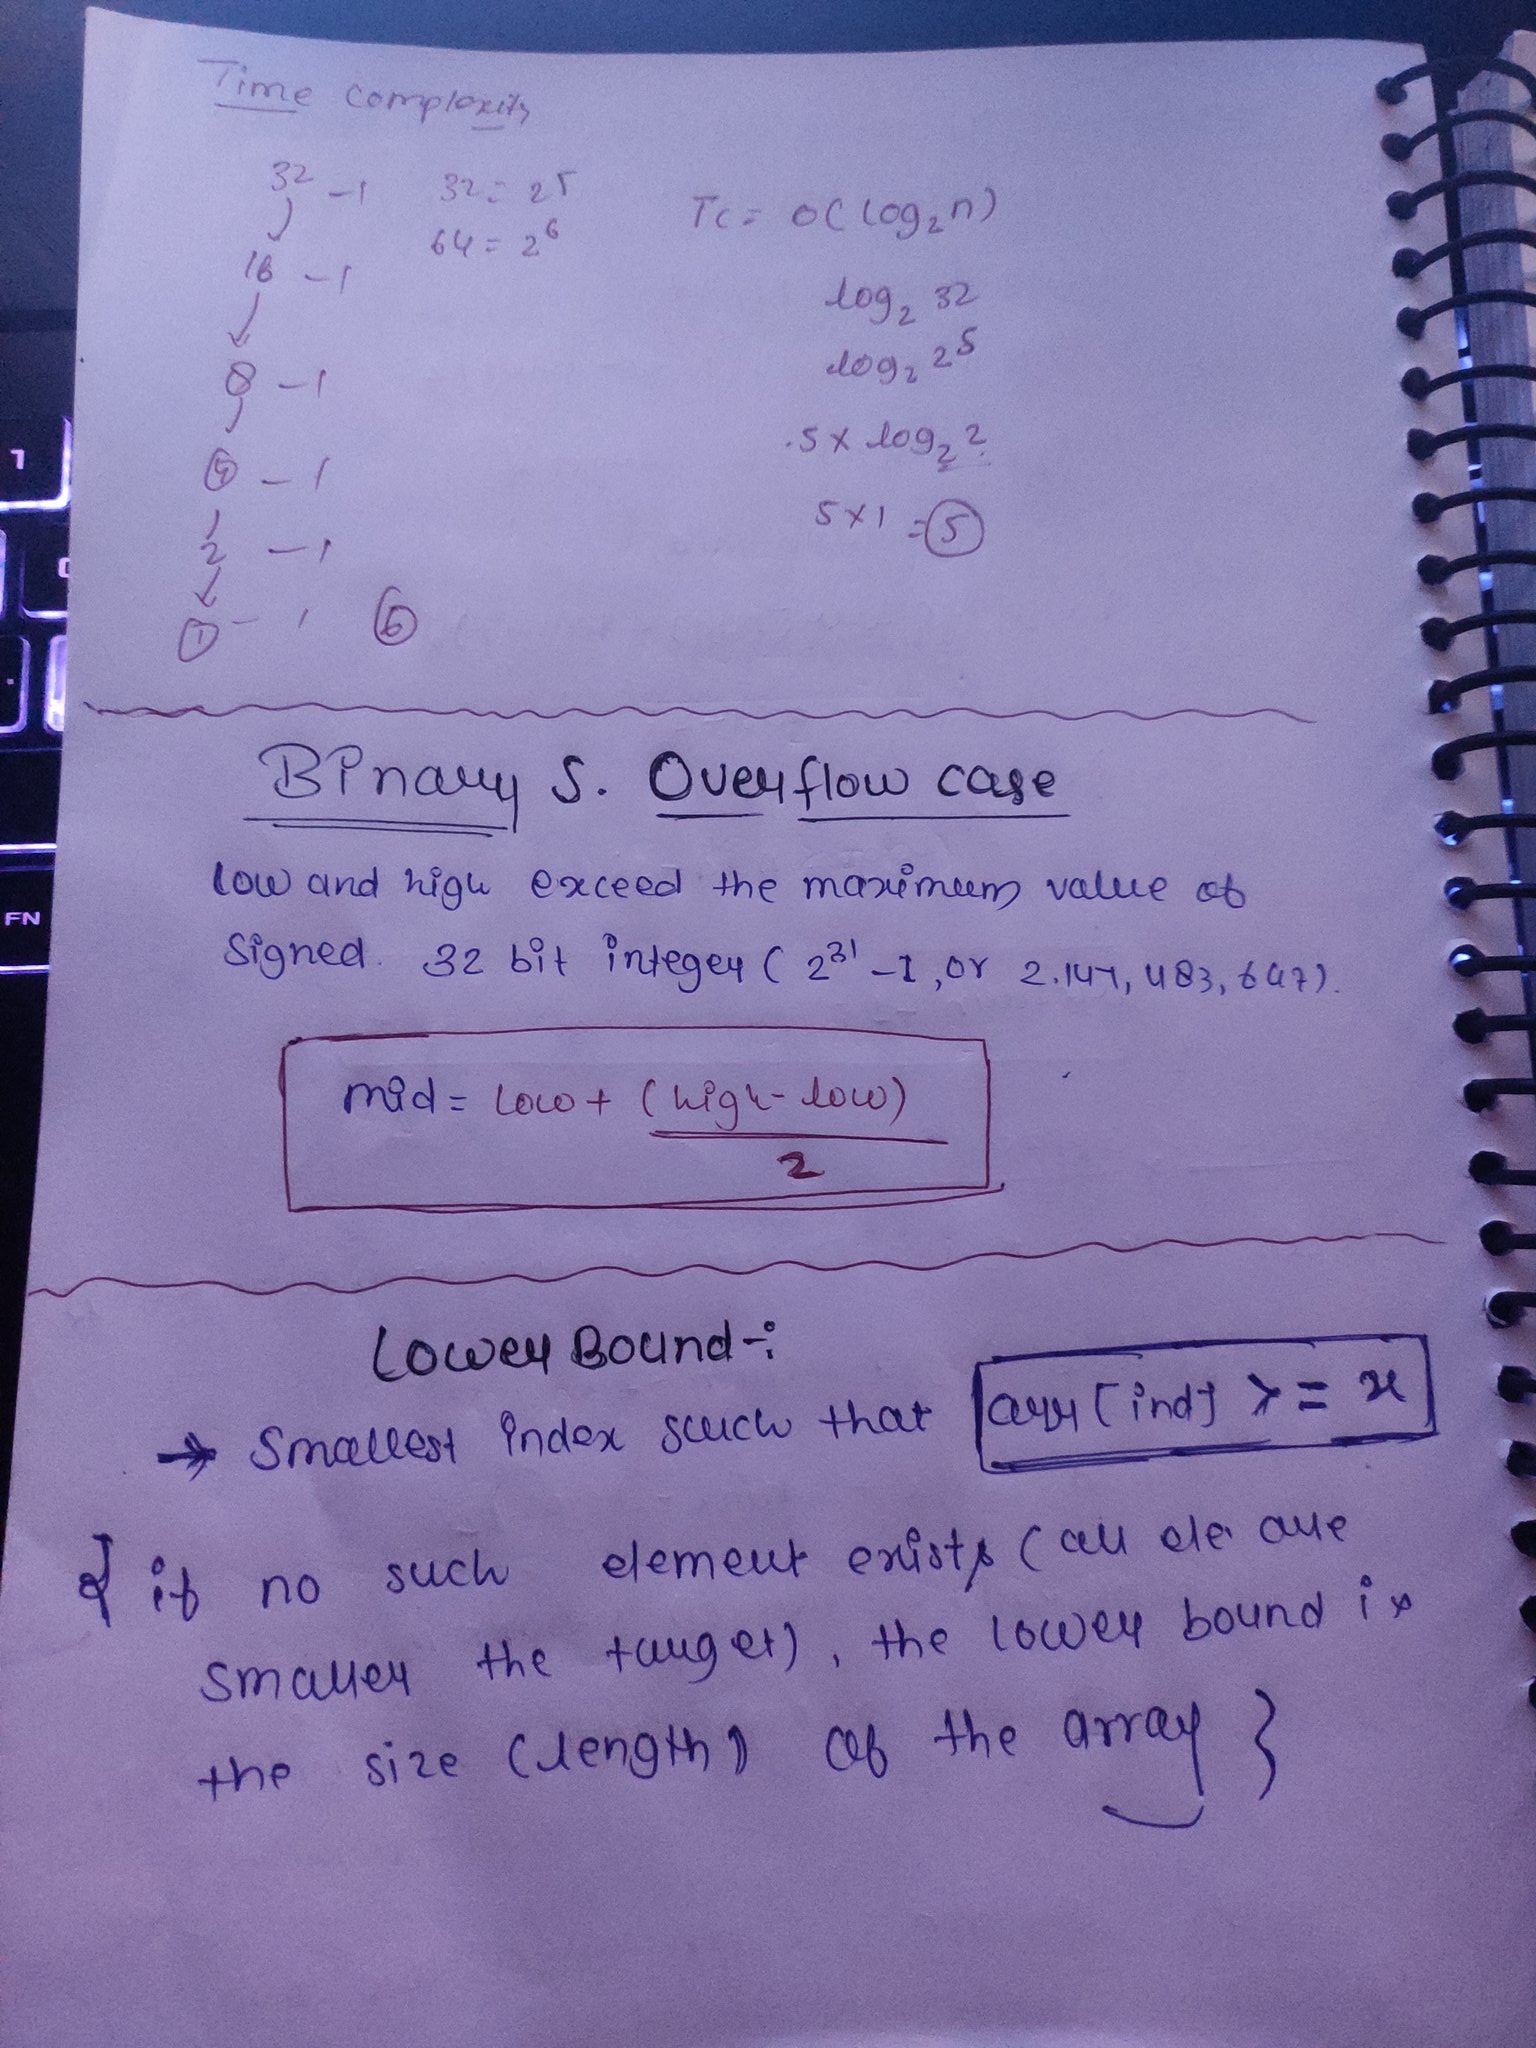 Time complexity
32 - 1
32 = 2^5
64 = 2^6
16 - 1
8 - 1
4 - 1
2 - 1
1 - 1
6
Tc = O(log₂n)
log₂ 32
log₂ 2^5
5 x log₂ 2
5 x 1 = 5
Binary S. Overflow case
low and high exceed the maximum value of
signed. 32 bit integer (2^31 -1, or 2.147, 483, 647).
mid = low + (high - low)
2
Lower Bound -:
→ Smallest index such that arr[ind] >= x
{ if no such element exists (all ele are
smaller the target), the lower bound is
the size (length) of the array }
1
FN